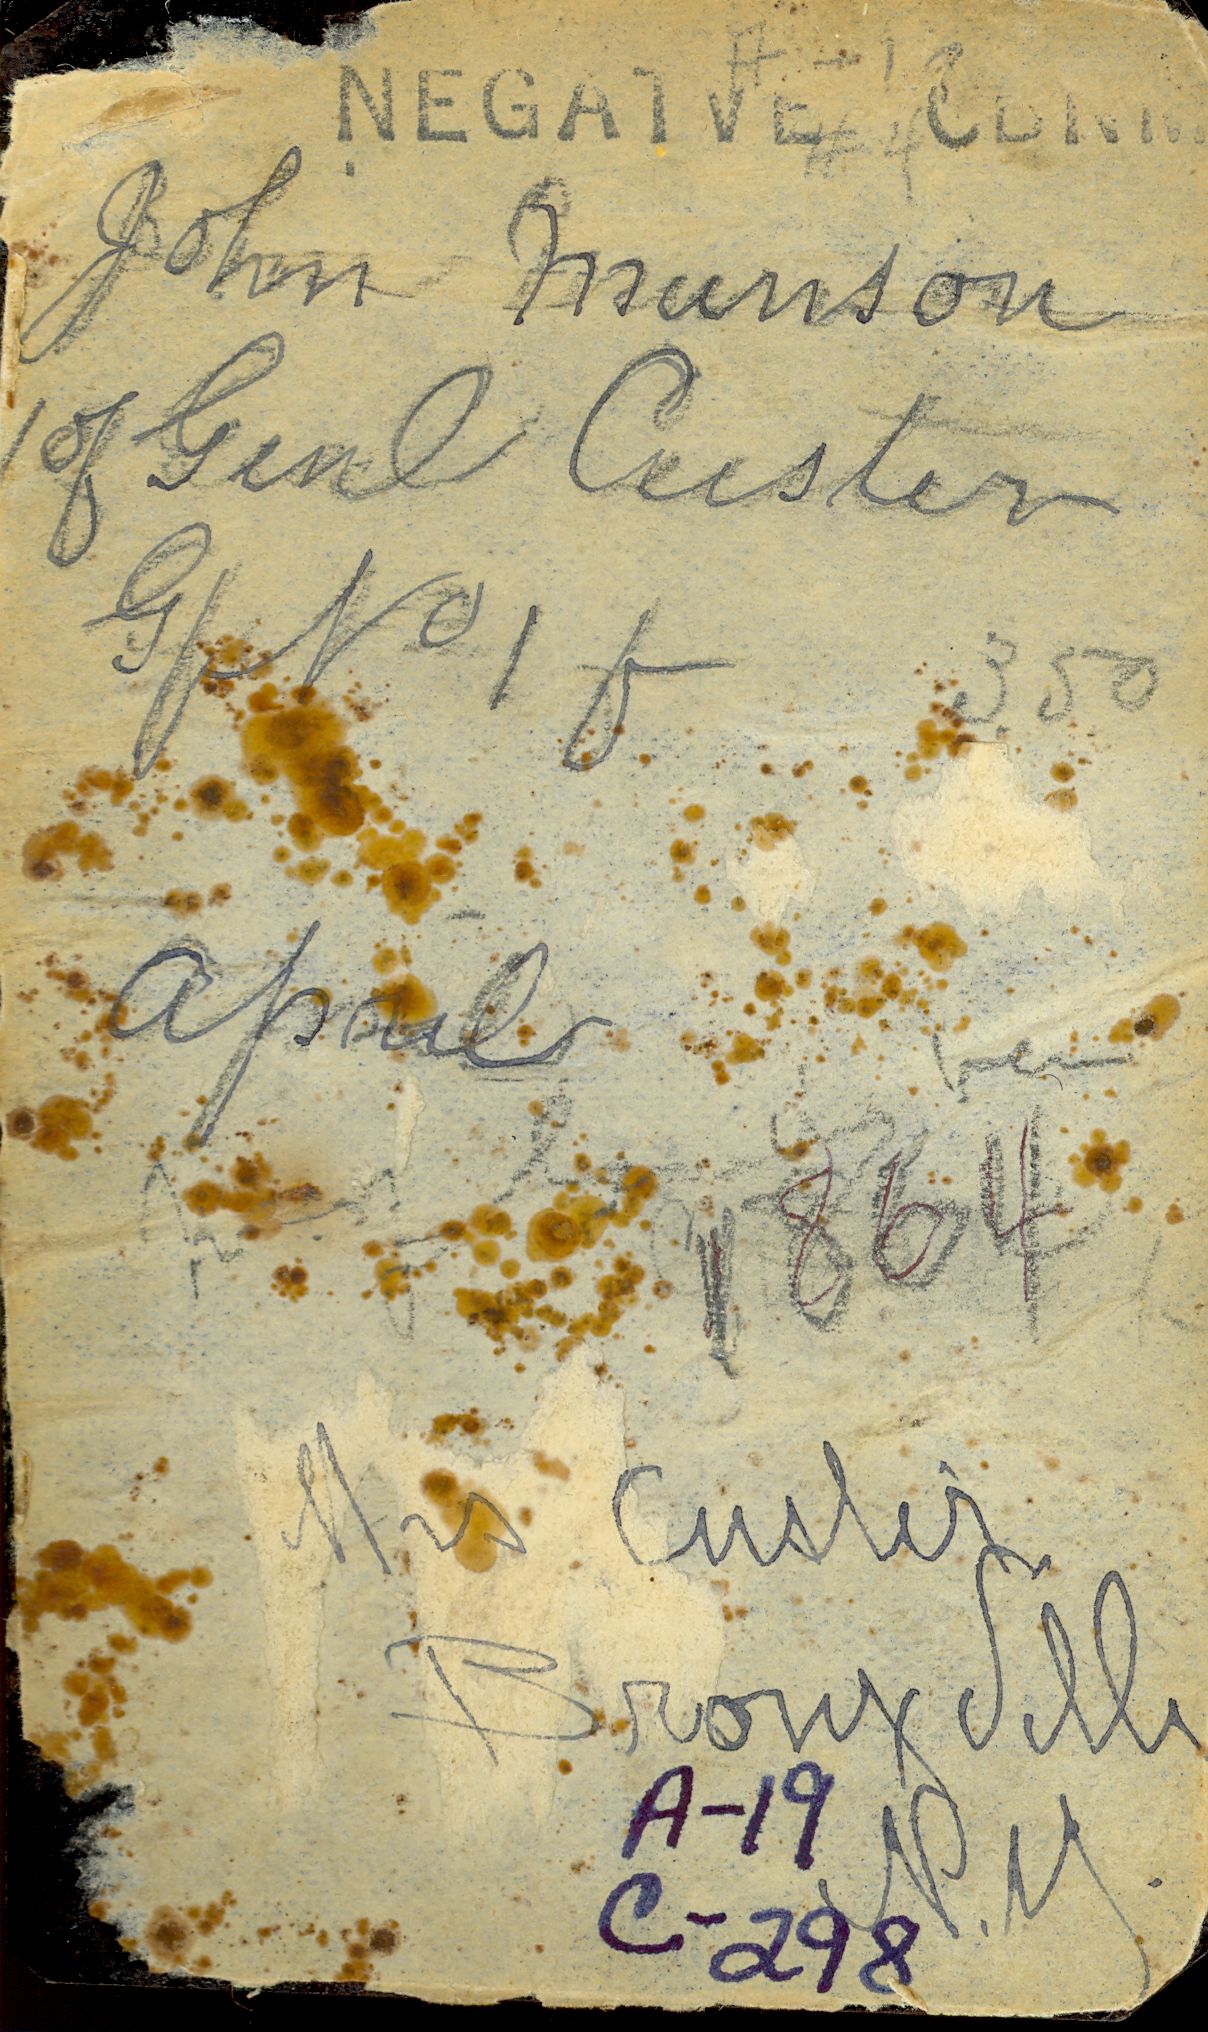 NEGATVE
#4
John Munson
1 of Genl Custer
Gp No 1 f
350
April
1864
Mrs Custer
Bronxville
N.Y.
A-19
C-298